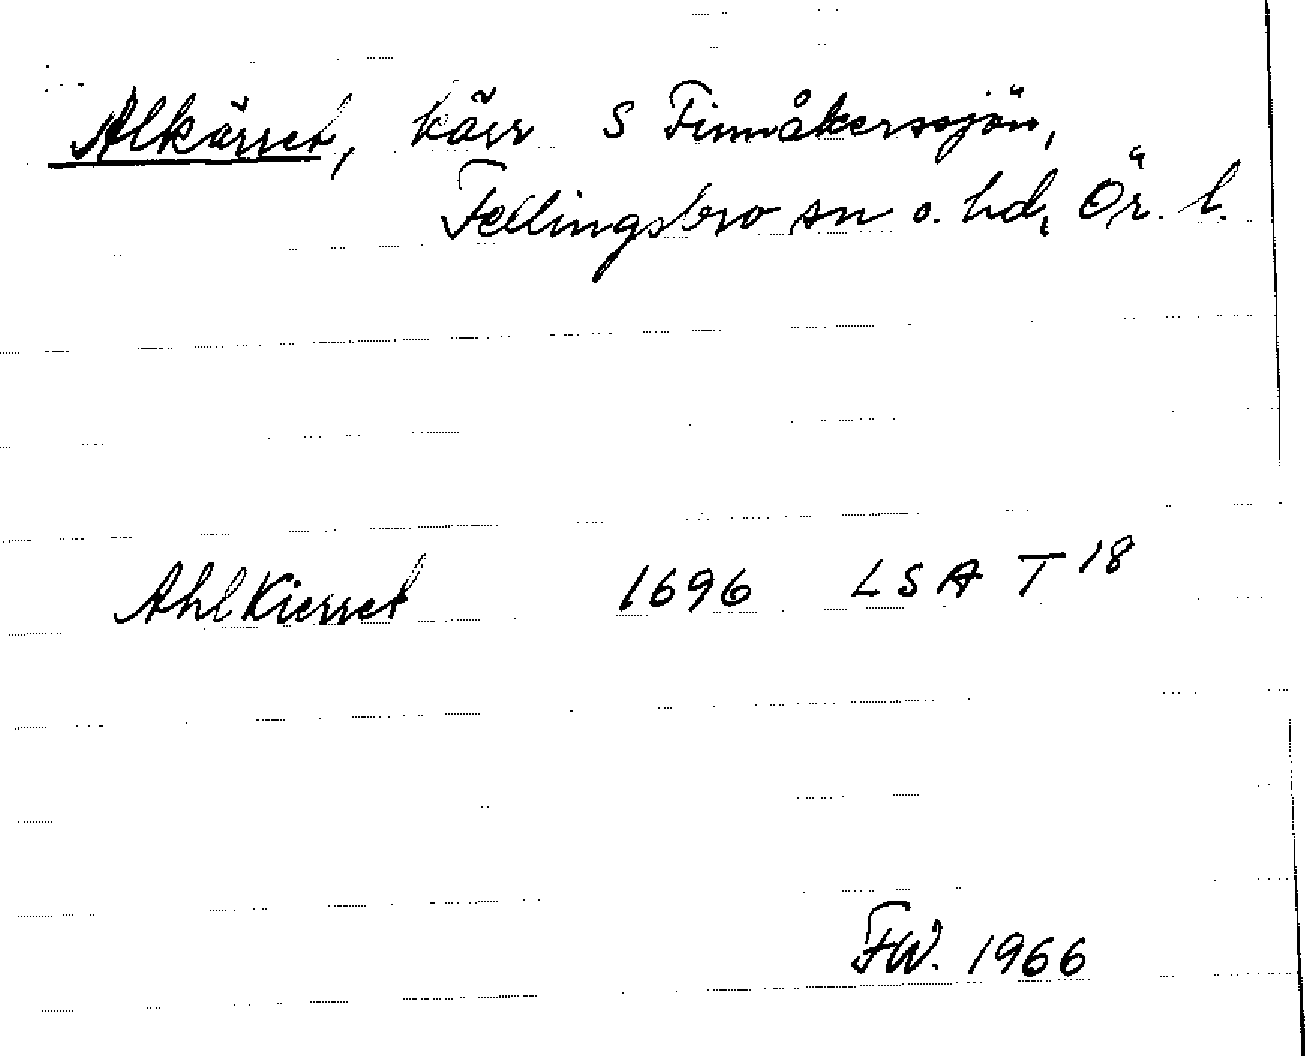 Alkärret, kärr S Finnåkerssjön,
Fellingsbro sn o. hd, Ör. l.
AhlKierret 1696 LSA T 18
FW. 1966